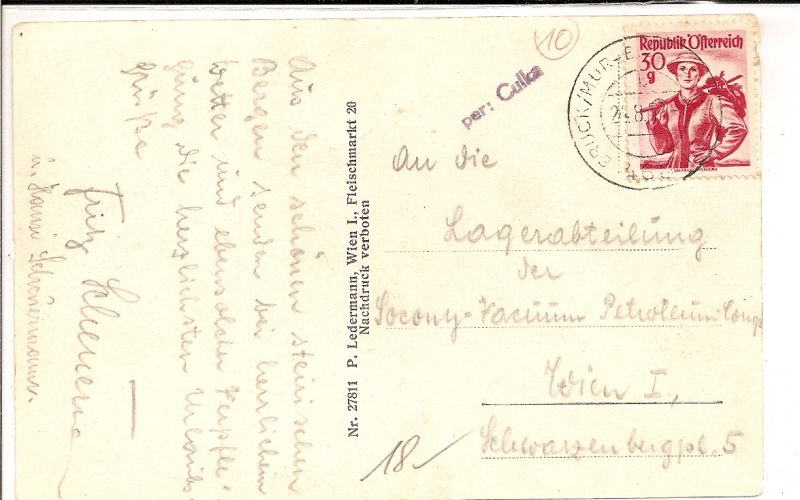 Aus den schönen steirischen
Bergen senden bei herrlichem
Wetter und ebensolcher Verpfle-
gung die herzlichsten Urlaubs-
grüße
Fritz
u. Hansi Scheuermann.
Nr. 27811 P. Ledermann, Wien I., Fleischmarkt 20
Nachdruck verboten
10
per: Culka
BRUCK/MUR
Republik Österreich
30
g
An die
Lagerabteilung
der
Socony-Vacuum Petroleum Comp
Wien I.,
Schwarzenbergpl. 5
18.-